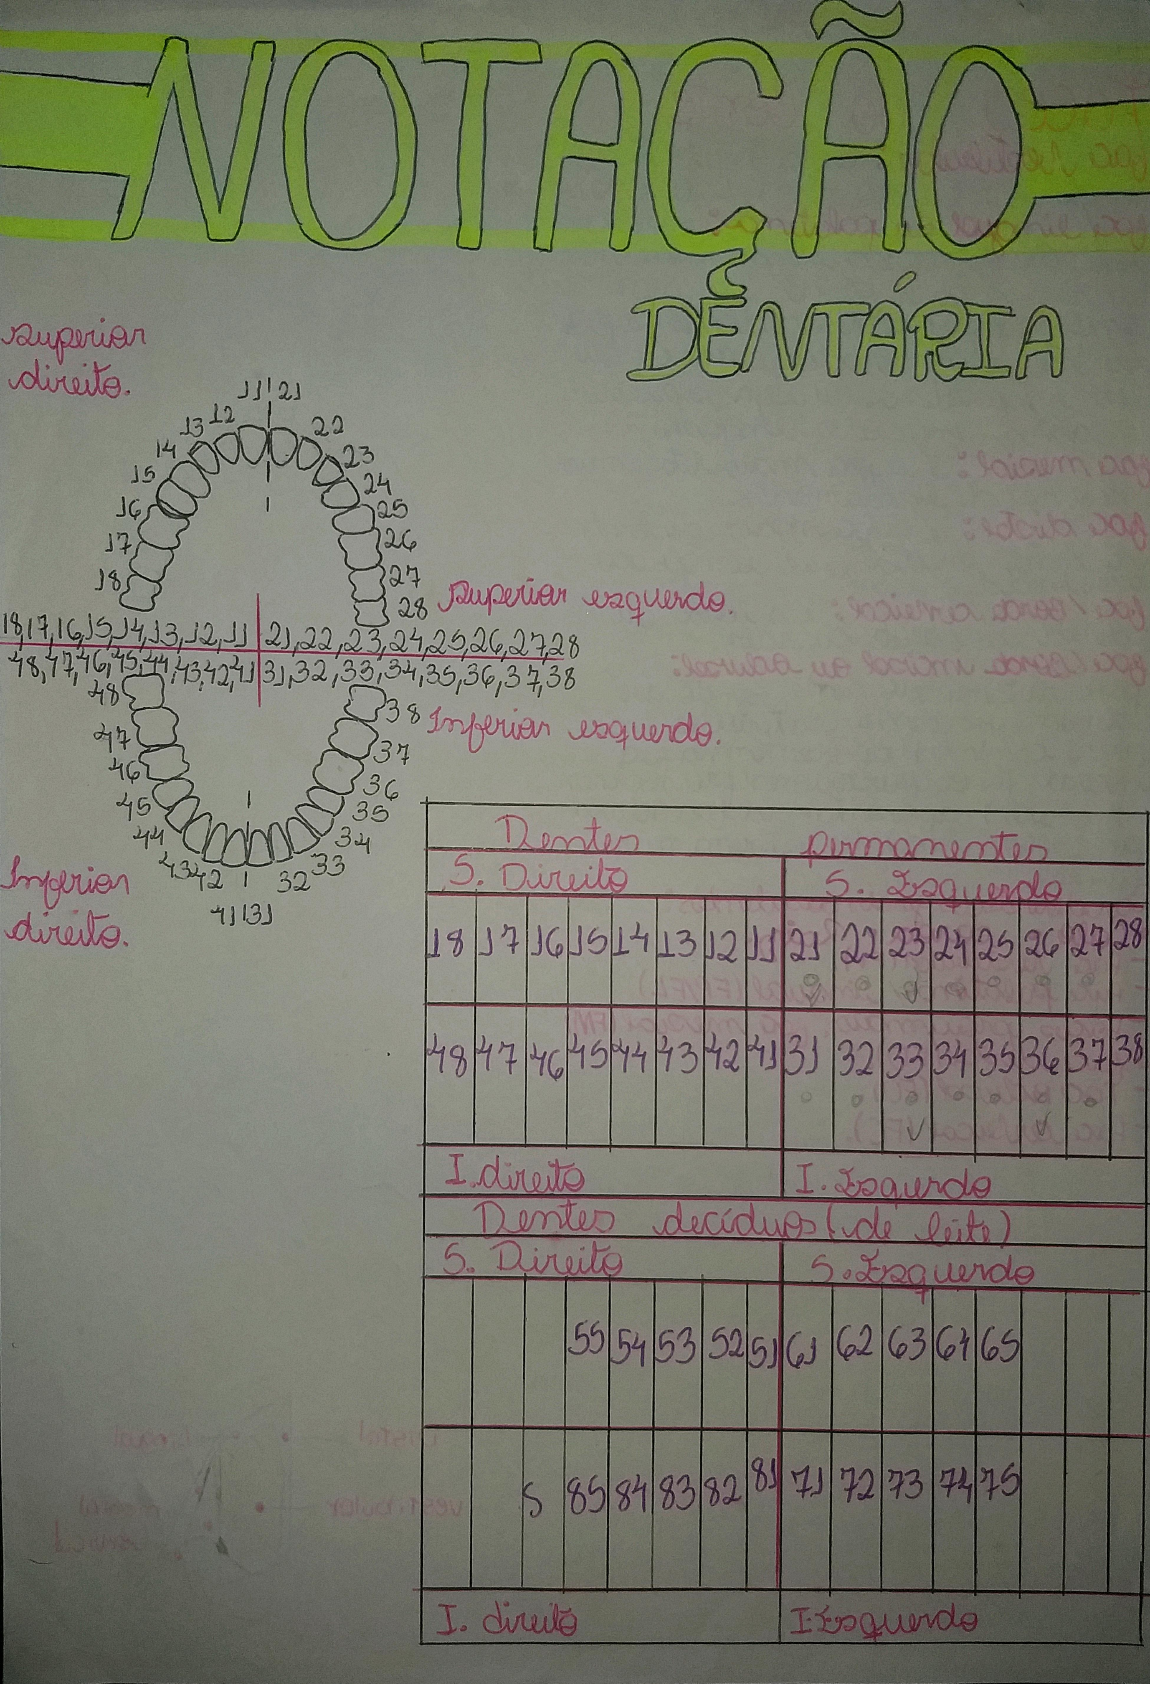 NOTAÇÃO
DENTÁRIA
Superior
direito.
11 21
12 22
13 23
14 24
15 25
16 26
17 27
18 28
Superior esquerdo.
18,17,16,15,14,13,12,11 21,22,23,24,25,26,27,28
48,47,46,45,44,43,42,41 31,32,33,34,35,36,37,38
48 38
Inferior esquerdo.
47 37
46 36
45 35
44 34
43 42 32 33
41 31
Inferior
direito.
Dentes permanentes
S. Direito S. Esquerdo
18 17 16 15 14 13 12 11 21 22 23 24 25 26 27 28
48 47 46 45 44 43 42 41 31 32 33 34 35 36 37 38
I. direito I. Esquerdo
Dentes decíduos (de leite)
S. Direito S. Esquerdo
55 54 53 52 51 61 62 63 64 65
S 85 84 83 82 81 71 72 73 74 75
I. direito I. Esquerdo